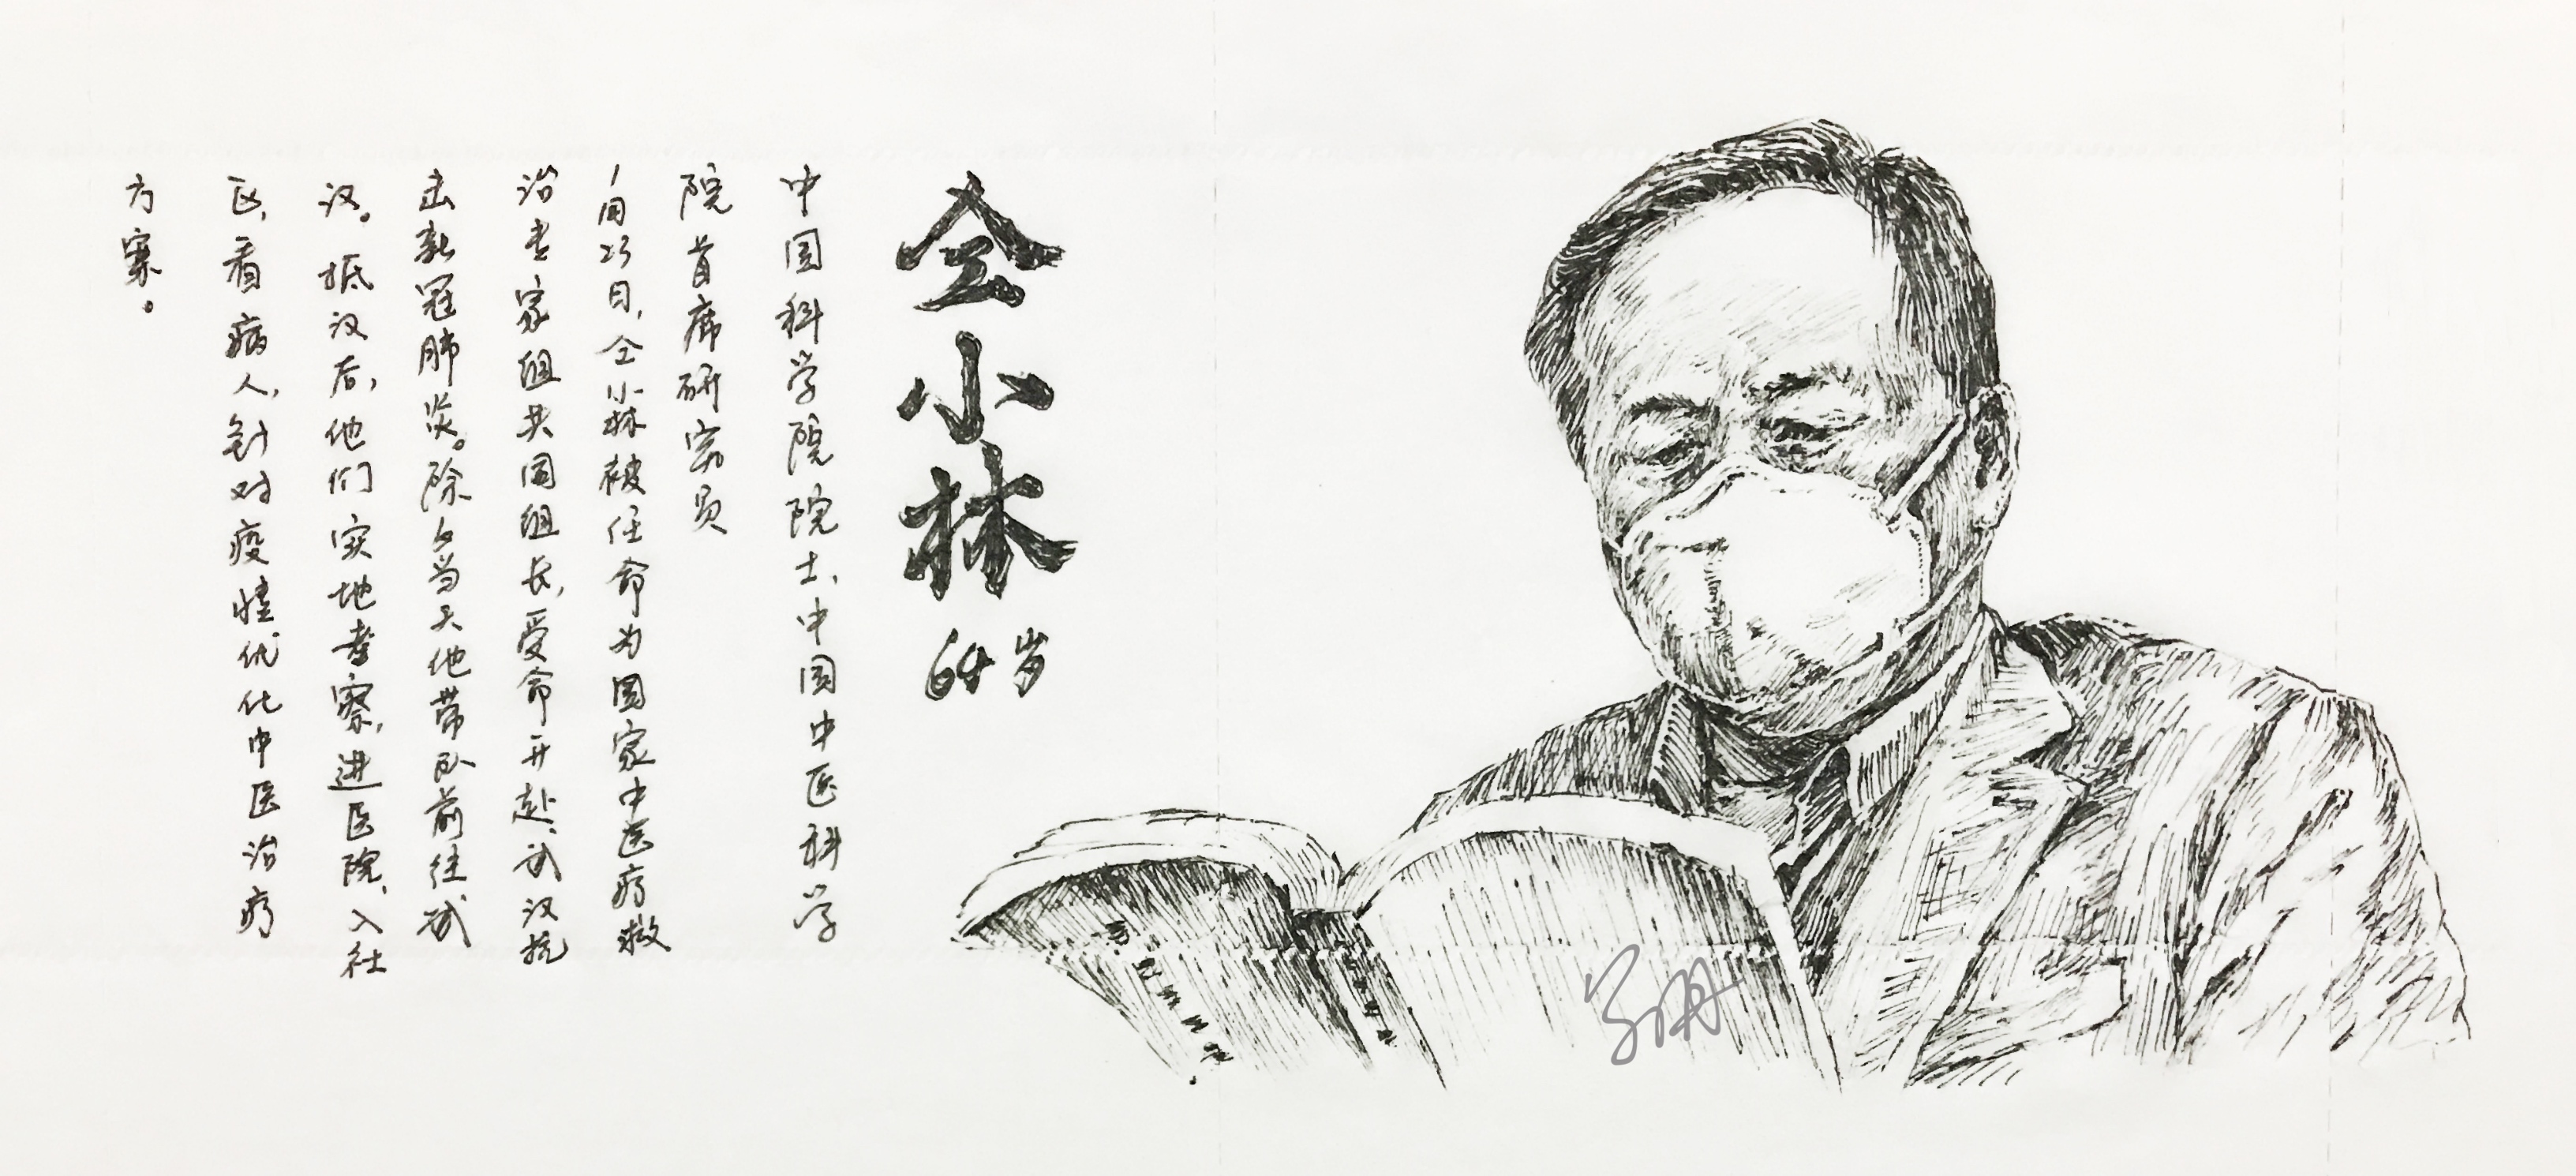 仝小林
64岁
中国科学院院士、中国中医科学
院首席研究员
1月23日，仝小林被任命为国家中医疗救
治专家组共同组长，受命开赴武汉抗
击新冠肺炎。除夕当天他带队前往武
汉。抵汉后，他们实地考察，进医院、入社
区，看病人，针对疫情优化中医治疗
方案。